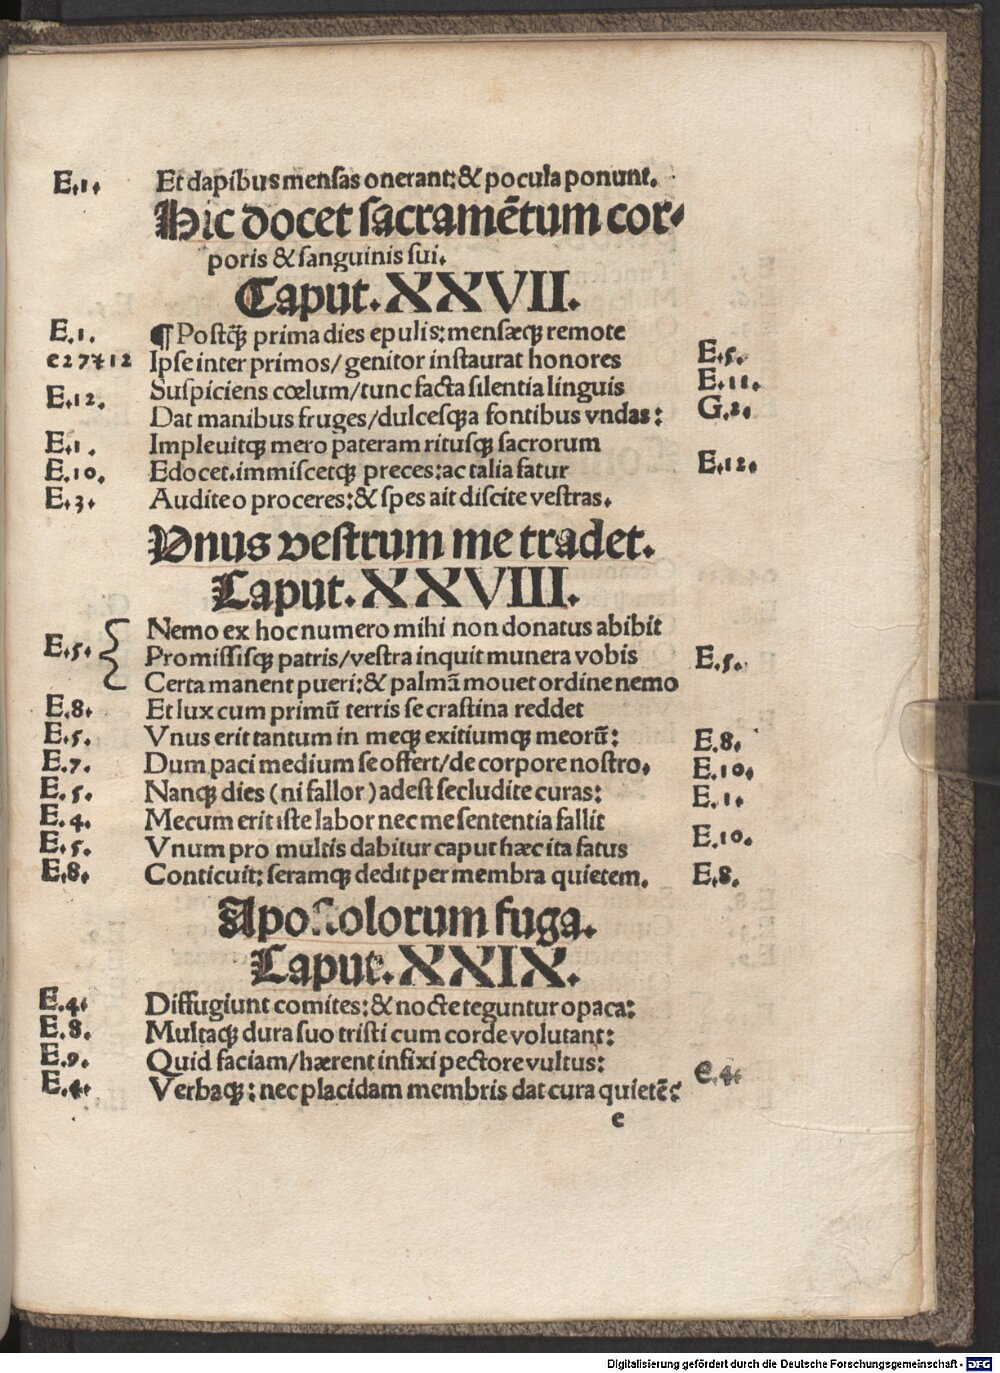 E.1. Et dapibus mensas onerant:& pocula ponunt.
Hic docet sacramētum cor⸗
poris & sanguinis sui.
Caput.XXVII.
E.1. ¶ Postq̃ prima dies epulis:mensæqꝫ remote
e 27 & 12 Ipse inter primos/genitor instaurat honores E.5.
Suspiciens cœlum/tunc facta silentia linguis E.11.
E.12. Dat manibus fruges/dulcesqꝫ a fontibus vndas: G.2.
E.1. Impleuitqꝫ mero pateram ritusqꝫ sacrorum
E.10. Edocet.immiscetqꝫ preces:ac talia fatur E.12.
E.3. Audite o proceres:& spes ait discite vestras.
Vnus vestrum me tradet.
Caput.XXVIII.
Nemo ex hoc numero mihi non donatus abibit
E.5. { Promissisqꝫ patris/vestra inquit munera vobis E.5.
Certa manent pueri:& palmā mouet ordine nemo
E.8. Et lux cum primū terris se crastina reddet
E.5. Vnus erit tantum in meqꝫ exitiumqꝫ meorū: E.8.
E.7. Dum paci medium se offert/de corpore nostro. E.10.
E.5. Nanqꝫ dies (ni fallor) adest secludite curas: E.1.
E.4. Mecum erit iste labor nec me sententia fallit
E.5. Vnum pro multis dabitur caput hæc ita fatus E.10.
E.8. Conticuit: seramqꝫ dedit per membra quietem. E.8.
Apostolorum fuga.
Caput.XXIX.
E.4. Diffugiunt comites:& nocte teguntur opaca:
E.8. Multaqꝫ dura suo tristi cum corde volutant:
E.9. Quid faciam/hærent infixi pectore vultus:
E.4. Verbaqꝫ: nec placidam membris dat cura quietē: e.4.
e
Digitalisierung gefördert durch die Deutsche Forschungsgemeinschaft - DFG